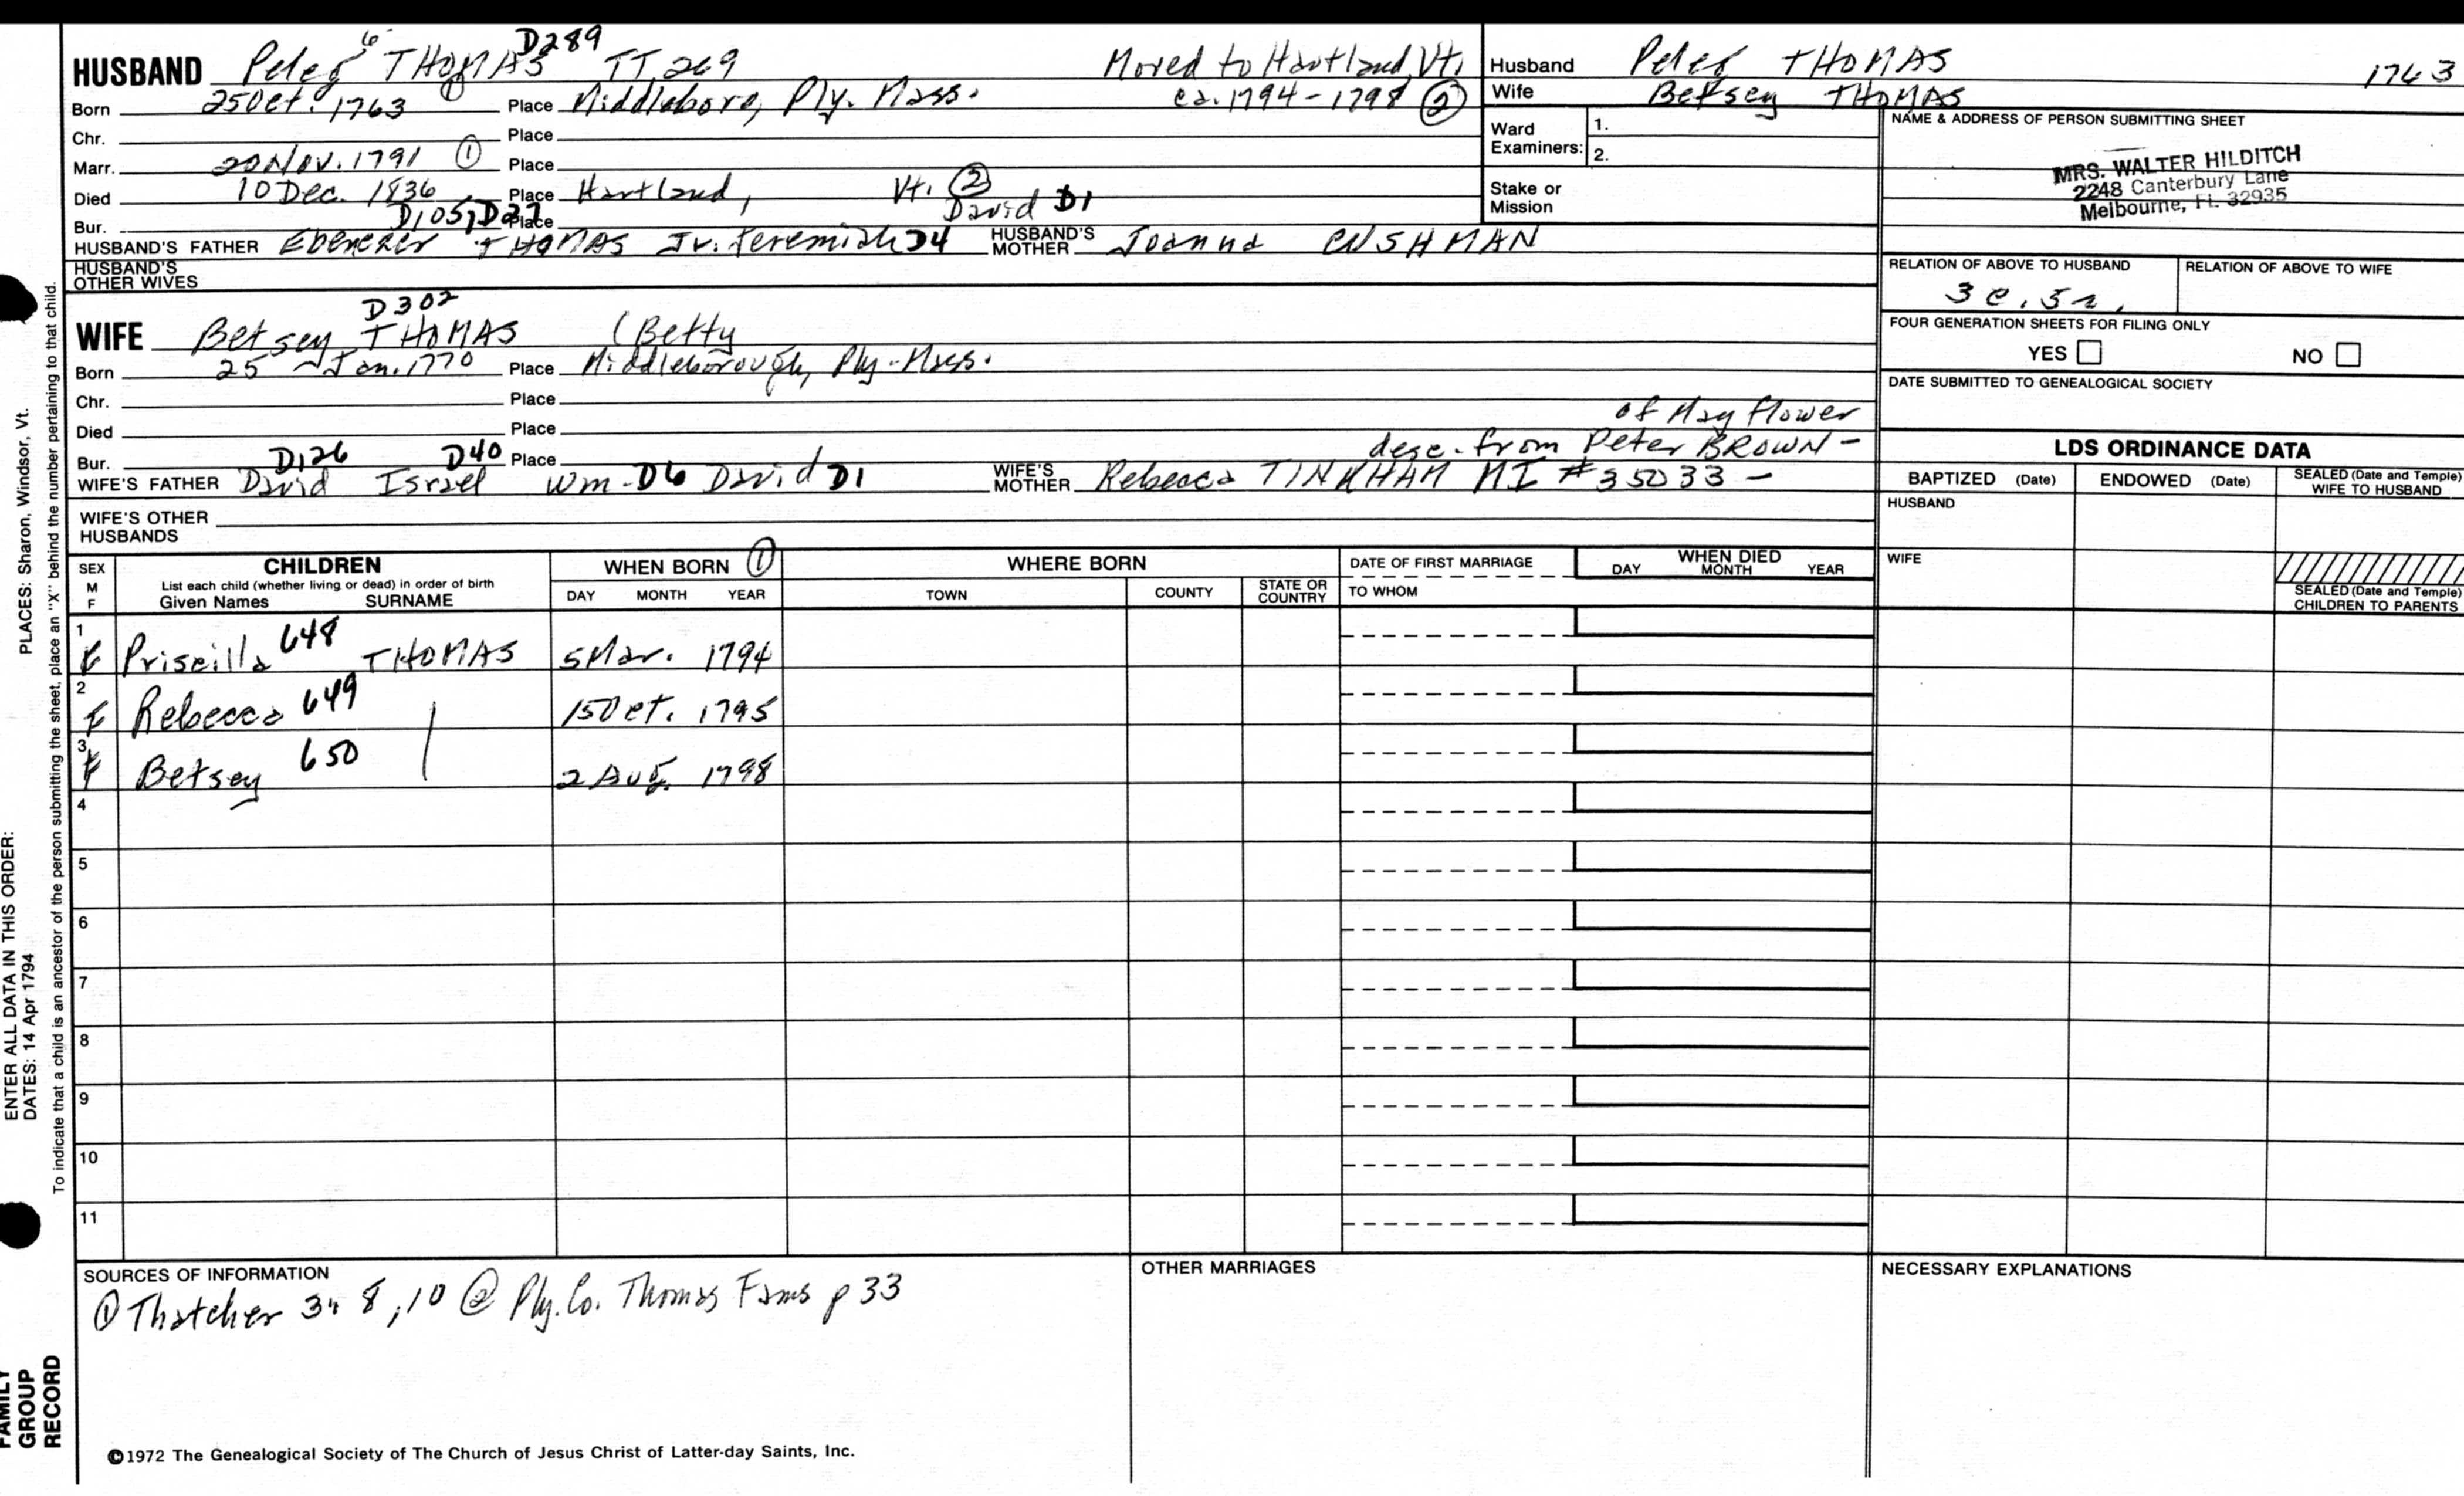 HUSBAND Peter⁶ THOMAS D289 TT, 269 Moved to Hartland, Vt.
Born 25 Oct. 1763 ① Place Middleboro, Ply. Mass. ca. 1794-1798 ②
Chr. Place
Marr. 20 Nov. 1791 ① Place
Died 10 Dec. 1836 Place Hartland, Vt. ②
Bur. D105, D27 Place David D1
HUSBAND'S FATHER Ebenezer THOMAS Jr. Jeremiah D4 HUSBAND'S MOTHER Joanna CUSHMAN
HUSBAND'S OTHER WIVES
D302
WIFE Betsey THOMAS (Betty
Born 25 Jan. 1770 Place Middleborough, Ply. Mass.
Chr. Place
Died Place of Mayflower
Bur. D126 D40 Place desc. from Peter BROWN -
WIFE'S FATHER David Israel Wm - D6 David D1 WIFE'S MOTHER Rebecca TINKHAM MI #35033 -
WIFE'S OTHER HUSBANDS
Husband Peter THOMAS 1763
Wife Betsey THOMAS
Ward Examiners: 1.
2.
Stake or Mission
NAME & ADDRESS OF PERSON SUBMITTING SHEET
MRS. WALTER HILDITCH
2248 Canterbury Lane
Melbourne, FL 32935
RELATION OF ABOVE TO HUSBAND RELATION OF ABOVE TO WIFE
3c. 5r.
FOUR GENERATION SHEETS FOR FILING ONLY
YES NO
DATE SUBMITTED TO GENEALOGICAL SOCIETY
LDS ORDINANCE DATA
BAPTIZED (Date) ENDOWED (Date) SEALED (Date and Temple) WIFE TO HUSBAND
HUSBAND
WIFE
SEALED (Date and Temple) CHILDREN TO PARENTS
SEX M F CHILDREN WHEN BORN ① WHERE BORN DATE OF FIRST MARRIAGE WHEN DIED
List each child (whether living or dead) in order of birth
Given Names SURNAME DAY MONTH YEAR TOWN COUNTY STATE OR COUNTRY TO WHOM DAY MONTH YEAR
1 F Priscilla 648 THOMAS 5 Mar. 1794
2 F Rebecca 649 | 15 Oct. 1795
3 F Betsey 650 | 2 Aug. 1798
4
5
6
7
8
9
10
11
SOURCES OF INFORMATION
① Thatcher 3: 8, 10 ② Ply. Co. Thomas Fams p 33
OTHER MARRIAGES
NECESSARY EXPLANATIONS
©1972 The Genealogical Society of The Church of Jesus Christ of Latter-day Saints, Inc.
FAMILY GROUP RECORD
ENTER ALL DATA IN THIS ORDER:
DATES: 14 Apr 1794
PLACES: Sharon, Windsor, Vt.
To indicate that a child is an ancestor of the person submitting the sheet, place an "X" behind the number pertaining to that child.